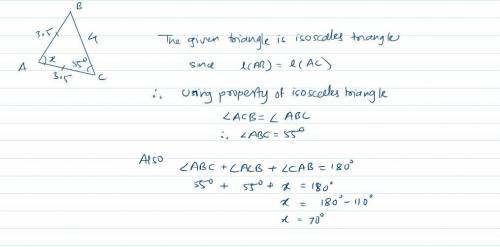 B
3.5
4
A
x
55°
3.5
C
The given triangle is isoscales triangle
since l(AB) = l(AC)
∴ Using property of isoscales triangle
∠ACB = ∠ABC
∴ ∠ABC = 55°
Also
∠ABC + ∠ACB + ∠CAB = 180°
55° + 55° + x = 180°
x = 180° - 110°
x = 70°